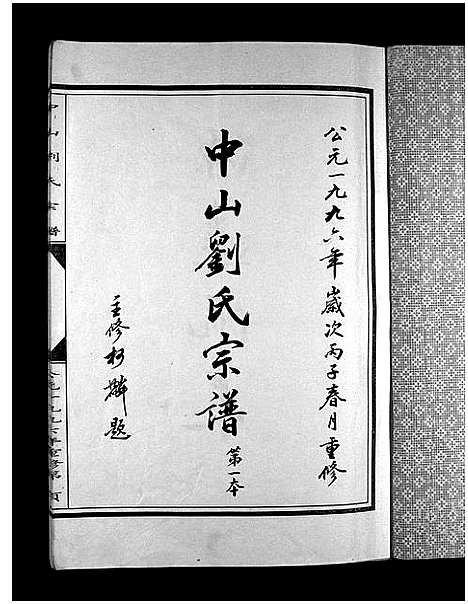 公元一九九六年歲次丙子春月重修
中山劉氏宗譜
第一本
主修柯麟題
中山劉氏宗譜
公元一九九六年重修第 頁